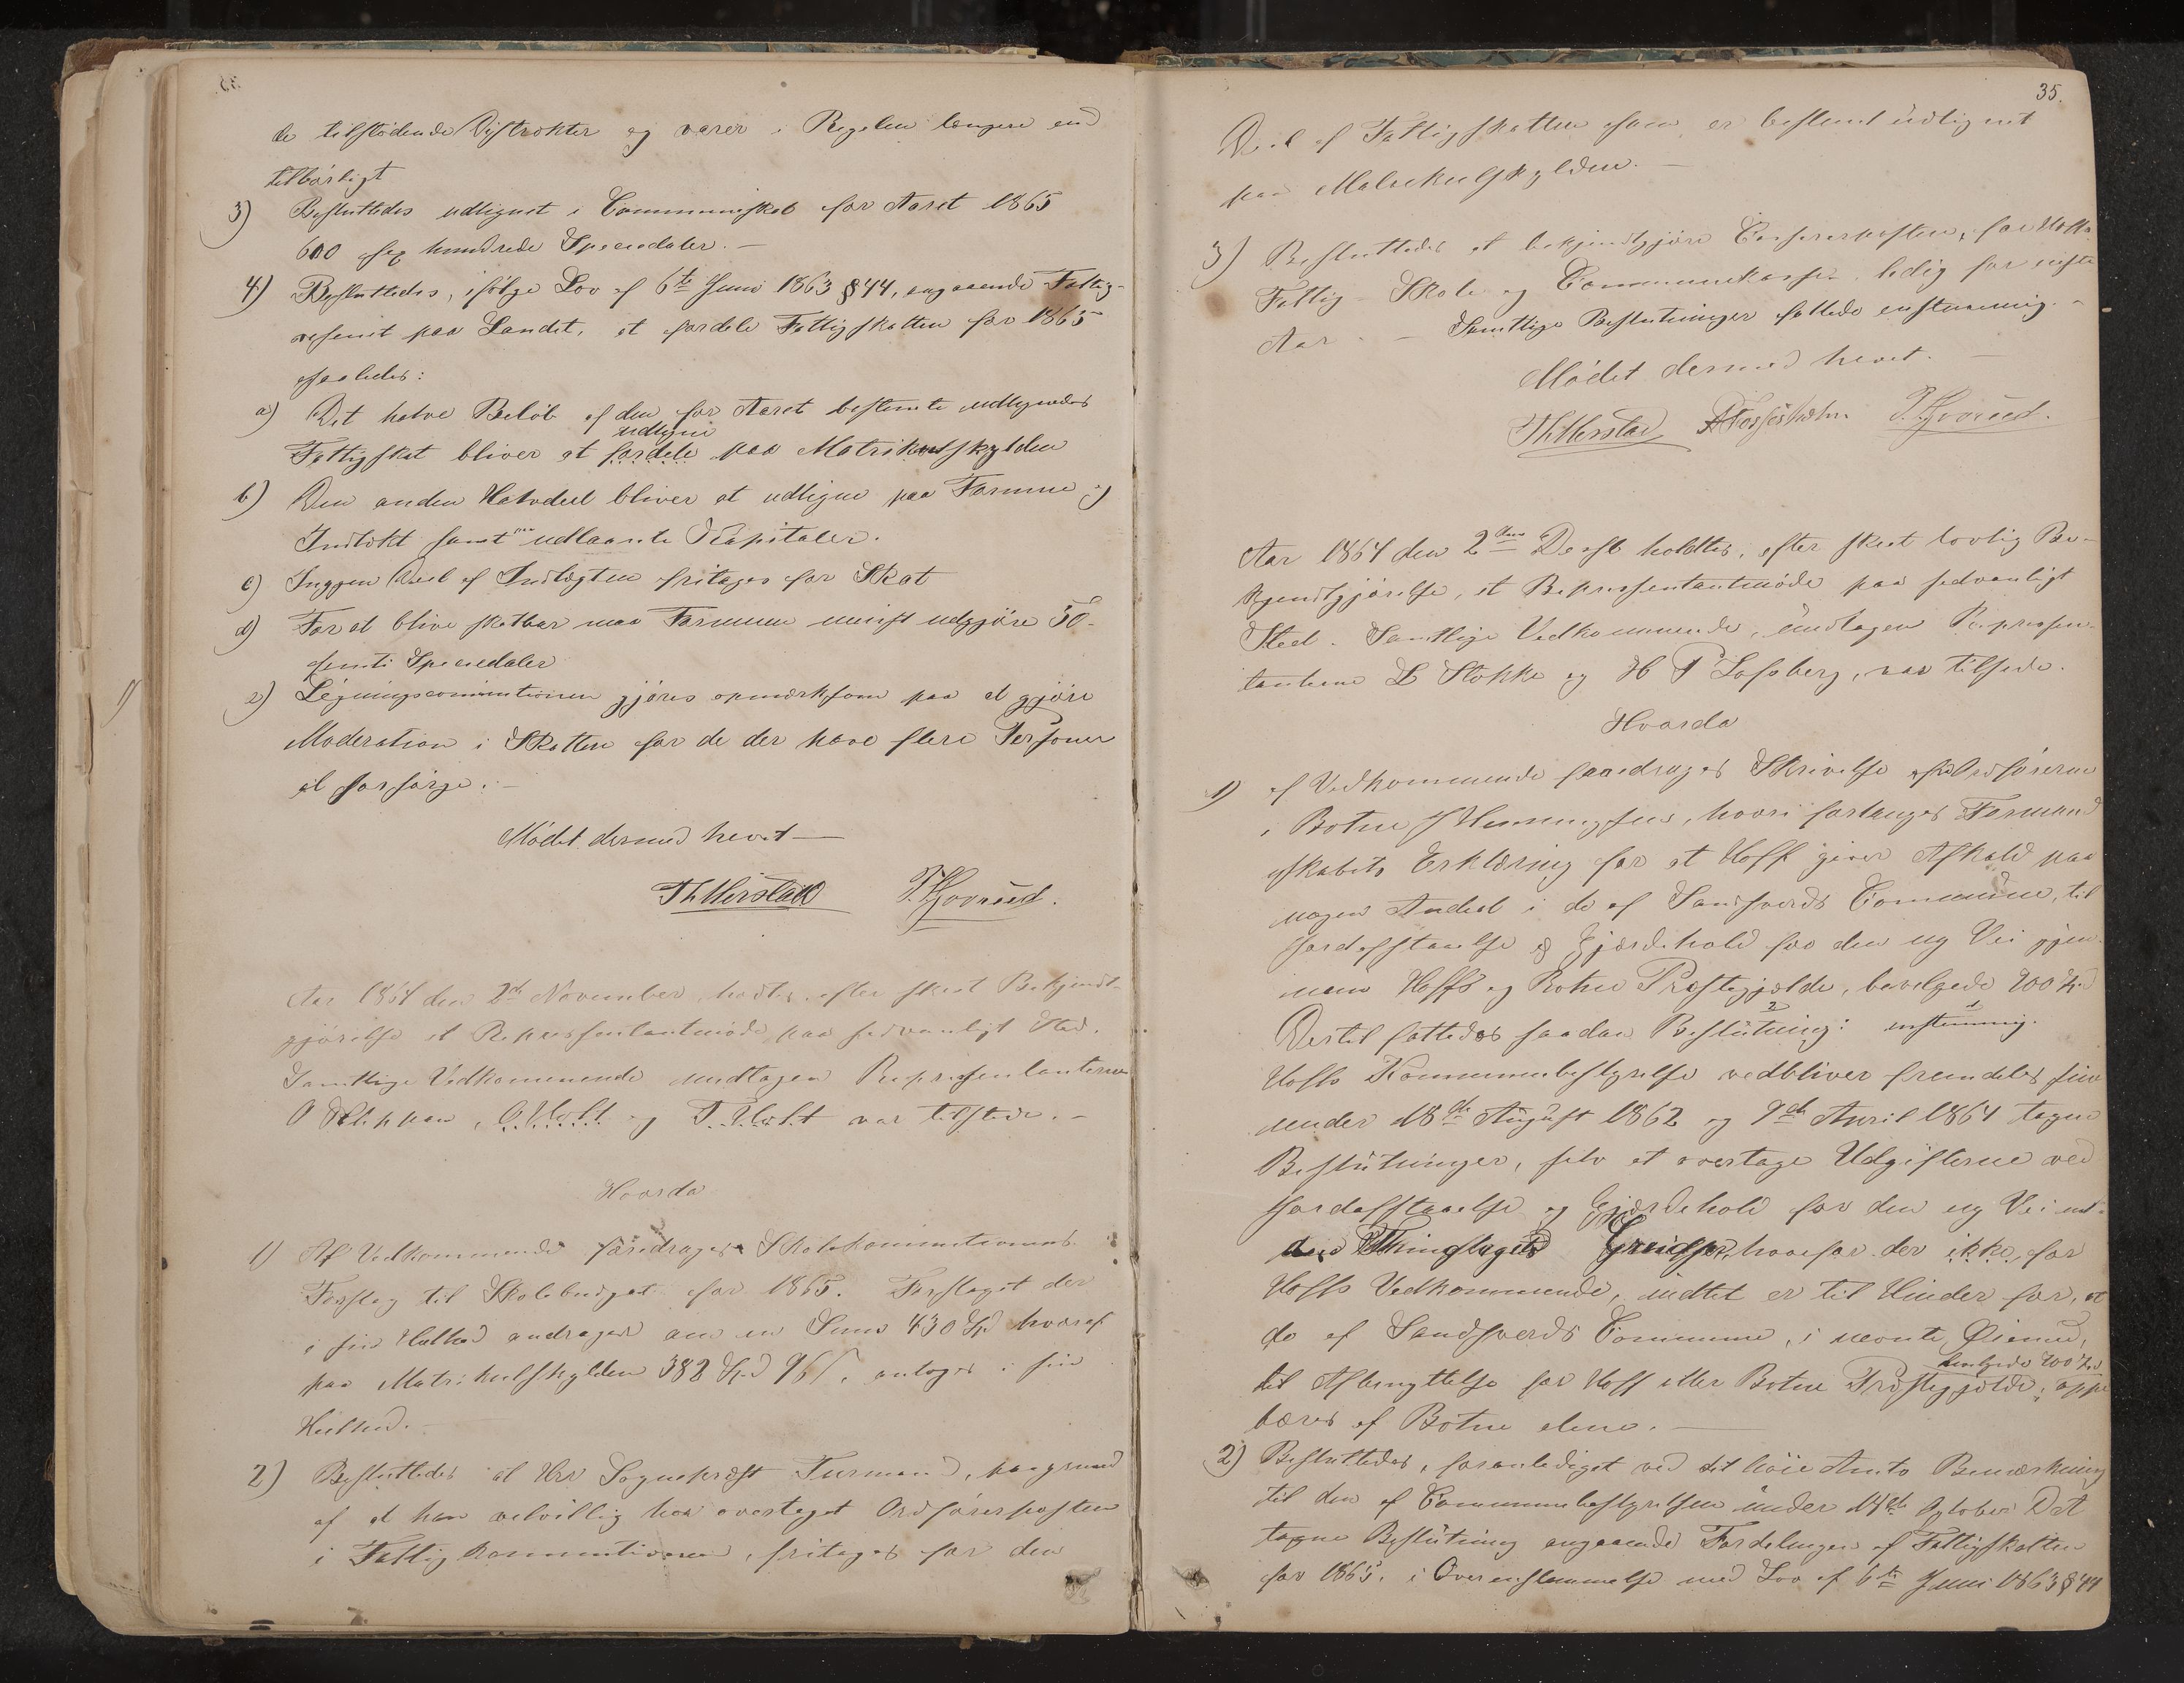 de tilstødende Distrokter og varer i Regelen længere end
tilbørligt
3) Besluttedes udlignet i Communeskat for Aaret 1865
600 sex hundrede Speciedaler. —
4) Besluttedes, ifølge Lov af 6te Juni 1863 § 44, angaaende Fattig-
væsenet paa Landet, at fordele Fattigskatten for 1865
saaledes:
a) Det halve Beløb af den for Aaret bestemte udlignedes
udligne
Fattigskat bliver at fordele paa Matrikulskylden
b) Den anden Halvdeel bliver at udligne paa Formue og
Indtekt samt paa udlaante Kapitaler.
c) Inggen Deel af Indtægten fritages for Skat
d) For at blive skatbar maa Formuen minst udgjøre 50 -
femti Speciedaler
e) Ligningscommitionen gjøres opmærksom paa at gjøre
Moderation i Skatten for de der have flere Personer
at forsørge. —
Mødet dermed hevet —
Th Ulerstad
Aar 1864 den 2de November holdtes efter skeet Bekjendt-
gjørelse et Repressentantmøde paa sedvanligt Sted.
Samtlige Vedkommende undtagen Repræsentanterne
O Klippan, og var tilstede. -
Hvorda
1) Af Vedkommende foredrages Skolekommitionens
Forslag til Skolebudget for 1865. Forslaget der
i sin Helhed andrager om en Sum 430 Spd hvoraf
paa Matrikulskylden 388 Spd 96 s, antoges i sin
Helhed. -
2) Besluttedes at Hrr Sogneprest Furmand, paagrund
af at han velvillig har overtaget Ordførerposten
i Fattigkommitionen, fritages for den
35.
Deel af Fattigskatten som er bestemt udlignet
paa Matrikulskylden. —
3) Besluttedes at bekjendtgjøre Cassererposten, for Hoffs
Fattig- Skole og Communekasser ledig for neste
Aar. — Samtlige Beslutninger fattede enstemmig. -
Mødet dermed hevet. —
Th Ulerstad
Aar 1864 den 2den Decbr holdtes, efter skeet lovlig Be-
kjendtgjørelse, et Repressentantmøde paa sedvanligt
Sted. Samtlige Vedkommende, undtagen Repressen-
tanterne L Stokke og H P Lofsberg, var tilstede.
Hvorda
1) af Vedkommende foredrages Skrivelse fra Ordføreren
i Botne J Henningsen, hvori forlanges Formand
skabets Erklæring for at Hoff giver Afkald paa
nogen Andeel i de af Sandsverds Commune, til
Jordafstaaelse og Gjærdehold for den ny Vei gjen-
nem Hoffs og Botne Prestegjælde, bevilgede 200 Spd
Dertil fattedes saadan Beslutning: enstemmig.
Hoffs Kommunebestyrelse vedbliver fremdeles sine
under 18de August 1862 og 9de April 1864 tagne
Beslutninger, selv at overtage Udgifterne ved
Jordafstaaelse og Gjærdehold for den ny Vei in-
den Thinglagets Grendser, hvorfor der ikke, for
Hoffs Vedkommende, indtet er til Hinder for, at
de af Sandsverds Commune, i nevnte Øiemed,
bevilgede 200 Spd
til Afbenyttelse for Hoff eller Botne Prestegjælde, oppe
bæres af Botne alene. —
2) Besluttedes, foranlediget ved det høie Amts Bemærkning
til den af Communebestyrelsen under 14de October Dat
tagne Beslutning angaaende Fordelingen af Fattigskatten
for 1865, i Overenstemmelse med Lov af 6te Juni 1863 § 44